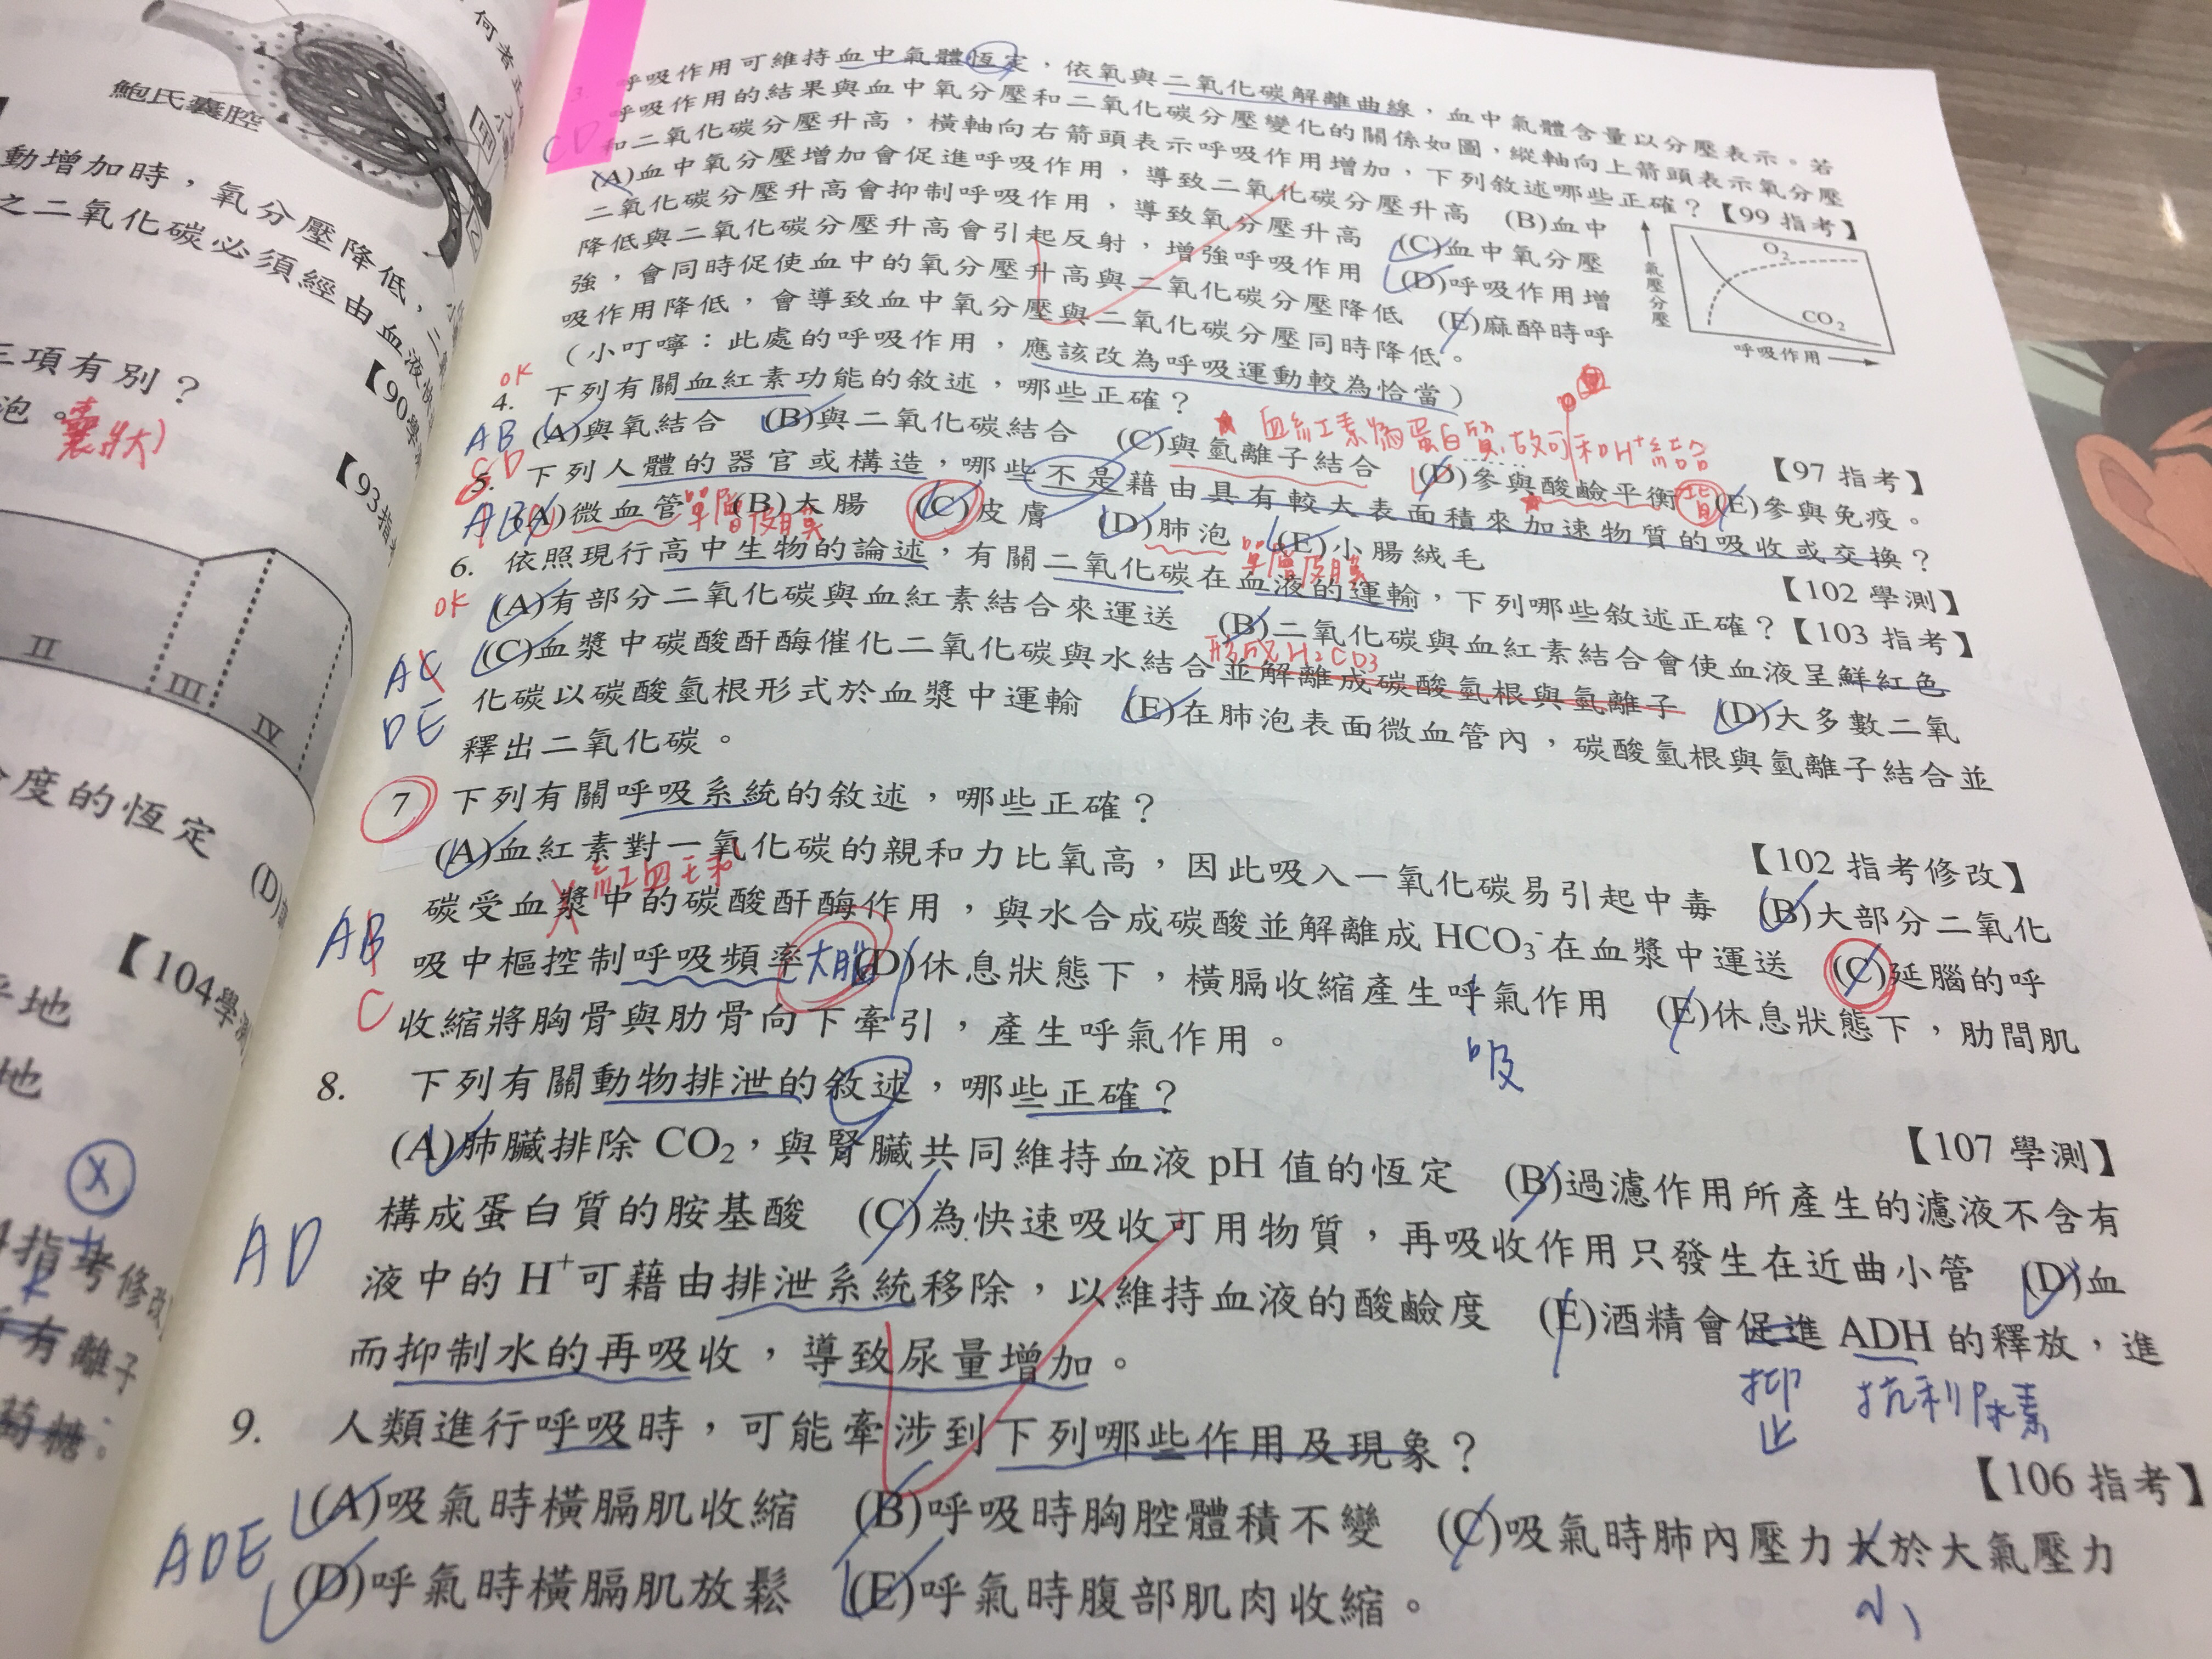 鮑氏囊腔
何者
動增加時，氧分壓降低，
之二氧化碳必須經由血液
【90學
三項有別？
泡。囊狀
【93指考
II
III
IV
度的恆定
(D)
【104學測
地
地
X
指考修改
所有離子
萄糖。
3. 呼吸作用可維持血中氣體恆定，依氧與二氧化碳解離曲線，血中氣體含量以分壓表示。若
呼吸作用的結果與血中氧分壓和二氧化碳分壓變化的關係如圖，縱軸向上箭頭表示氧分壓
CD
和二氧化碳分壓升高，橫軸向右箭頭表示呼吸作用增加，下列敘述哪些正確？【99指考】
(A)血中氧分壓增加會促進呼吸作用，導致二氧化碳分壓升高 (B)血中
二氧化碳分壓升高會抑制呼吸作用，導致氧分壓升高 (C)血中氧分壓
降低與二氧化碳分壓升高會引起反射，增強呼吸作用 (D)呼吸作用增
強，會同時促使血中的氧分壓升高與二氧化碳分壓降低 (E)麻醉時呼
吸作用降低，會導致血中氧分壓與二氧化碳分壓同時降低。
（小叮嚀：此處的呼吸作用，應該改為呼吸運動較為恰當）
氣壓分壓
O₂
CO₂
呼吸作用
OK
4. 下列有關血紅素功能的敘述，哪些正確？
【97指考】
★血紅素為蛋白質，故可和H⁺結合
AB
CD
(A)與氧結合 (B)與二氧化碳結合 (C)與氫離子結合 (D)參與酸鹼平衡 (E)參與免疫。
5. 下列人體的器官或構造，哪些不是藉由具有較大表面積來加速物質的吸收或交換？
【102學測】
(A)微血管 (B)大腸 (C)皮膚 (D)肺泡 (E)小腸絨毛
單層皮膜
單層皮膜
6. 依照現行高中生物的論述，有關二氧化碳在血液的運輸，下列哪些敘述正確？【103指考】
OK
(A)有部分二氧化碳與血紅素結合來運送 (B)二氧化碳與血紅素結合會使血液呈鮮紅色
形成H₂CO₃
(C)血漿中碳酸酐酶催化二氧化碳與水結合並解離成碳酸氫根與氫離子 (D)大多數二氧
AC
DE
化碳以碳酸氫根形式於血漿中運輸 (E)在肺泡表面微血管內，碳酸氫根與氫離子結合並
釋出二氧化碳。
7 下列有關呼吸系統的敘述，哪些正確？
【102指考修改】
(A)血紅素對一氧化碳的親和力比氧高，因此吸入一氧化碳易引起中毒 (B)大部分二氧化
紅血球
碳受血漿中的碳酸酐酶作用，與水合成碳酸並解離成 HCO₃⁻在血漿中運送 (C)延腦的呼
AB
C
吸中樞控制呼吸頻率 (D)休息狀態下，橫膈收縮產生呼氣作用 (E)休息狀態下，肋間肌
大腦
吸
收縮將胸骨與肋骨向下牽引，產生呼氣作用。
8. 下列有關動物排泄的敘述，哪些正確？
【107學測】
(A)肺臟排除 CO₂，與腎臟共同維持血液 pH 值的恆定 (B)過濾作用所產生的濾液不含有
構成蛋白質的胺基酸 (C)為快速吸收可用物質，再吸收作用只發生在近曲小管 (D)血
AD
液中的 H⁺可藉由排泄系統移除，以維持血液的酸鹼度 (E)酒精會促進 ADH 的釋放，進
抑止 抗利尿素
而抑制水的再吸收，導致尿量增加。
9. 人類進行呼吸時，可能牽涉到下列哪些作用及現象？
【106指考】
ADE
(A)吸氣時橫膈肌收縮 (B)呼吸時胸腔體積不變 (C)吸氣時肺內壓力大於大氣壓力
小
(D)呼氣時橫膈肌放鬆 (E)呼氣時腹部肌肉收縮。